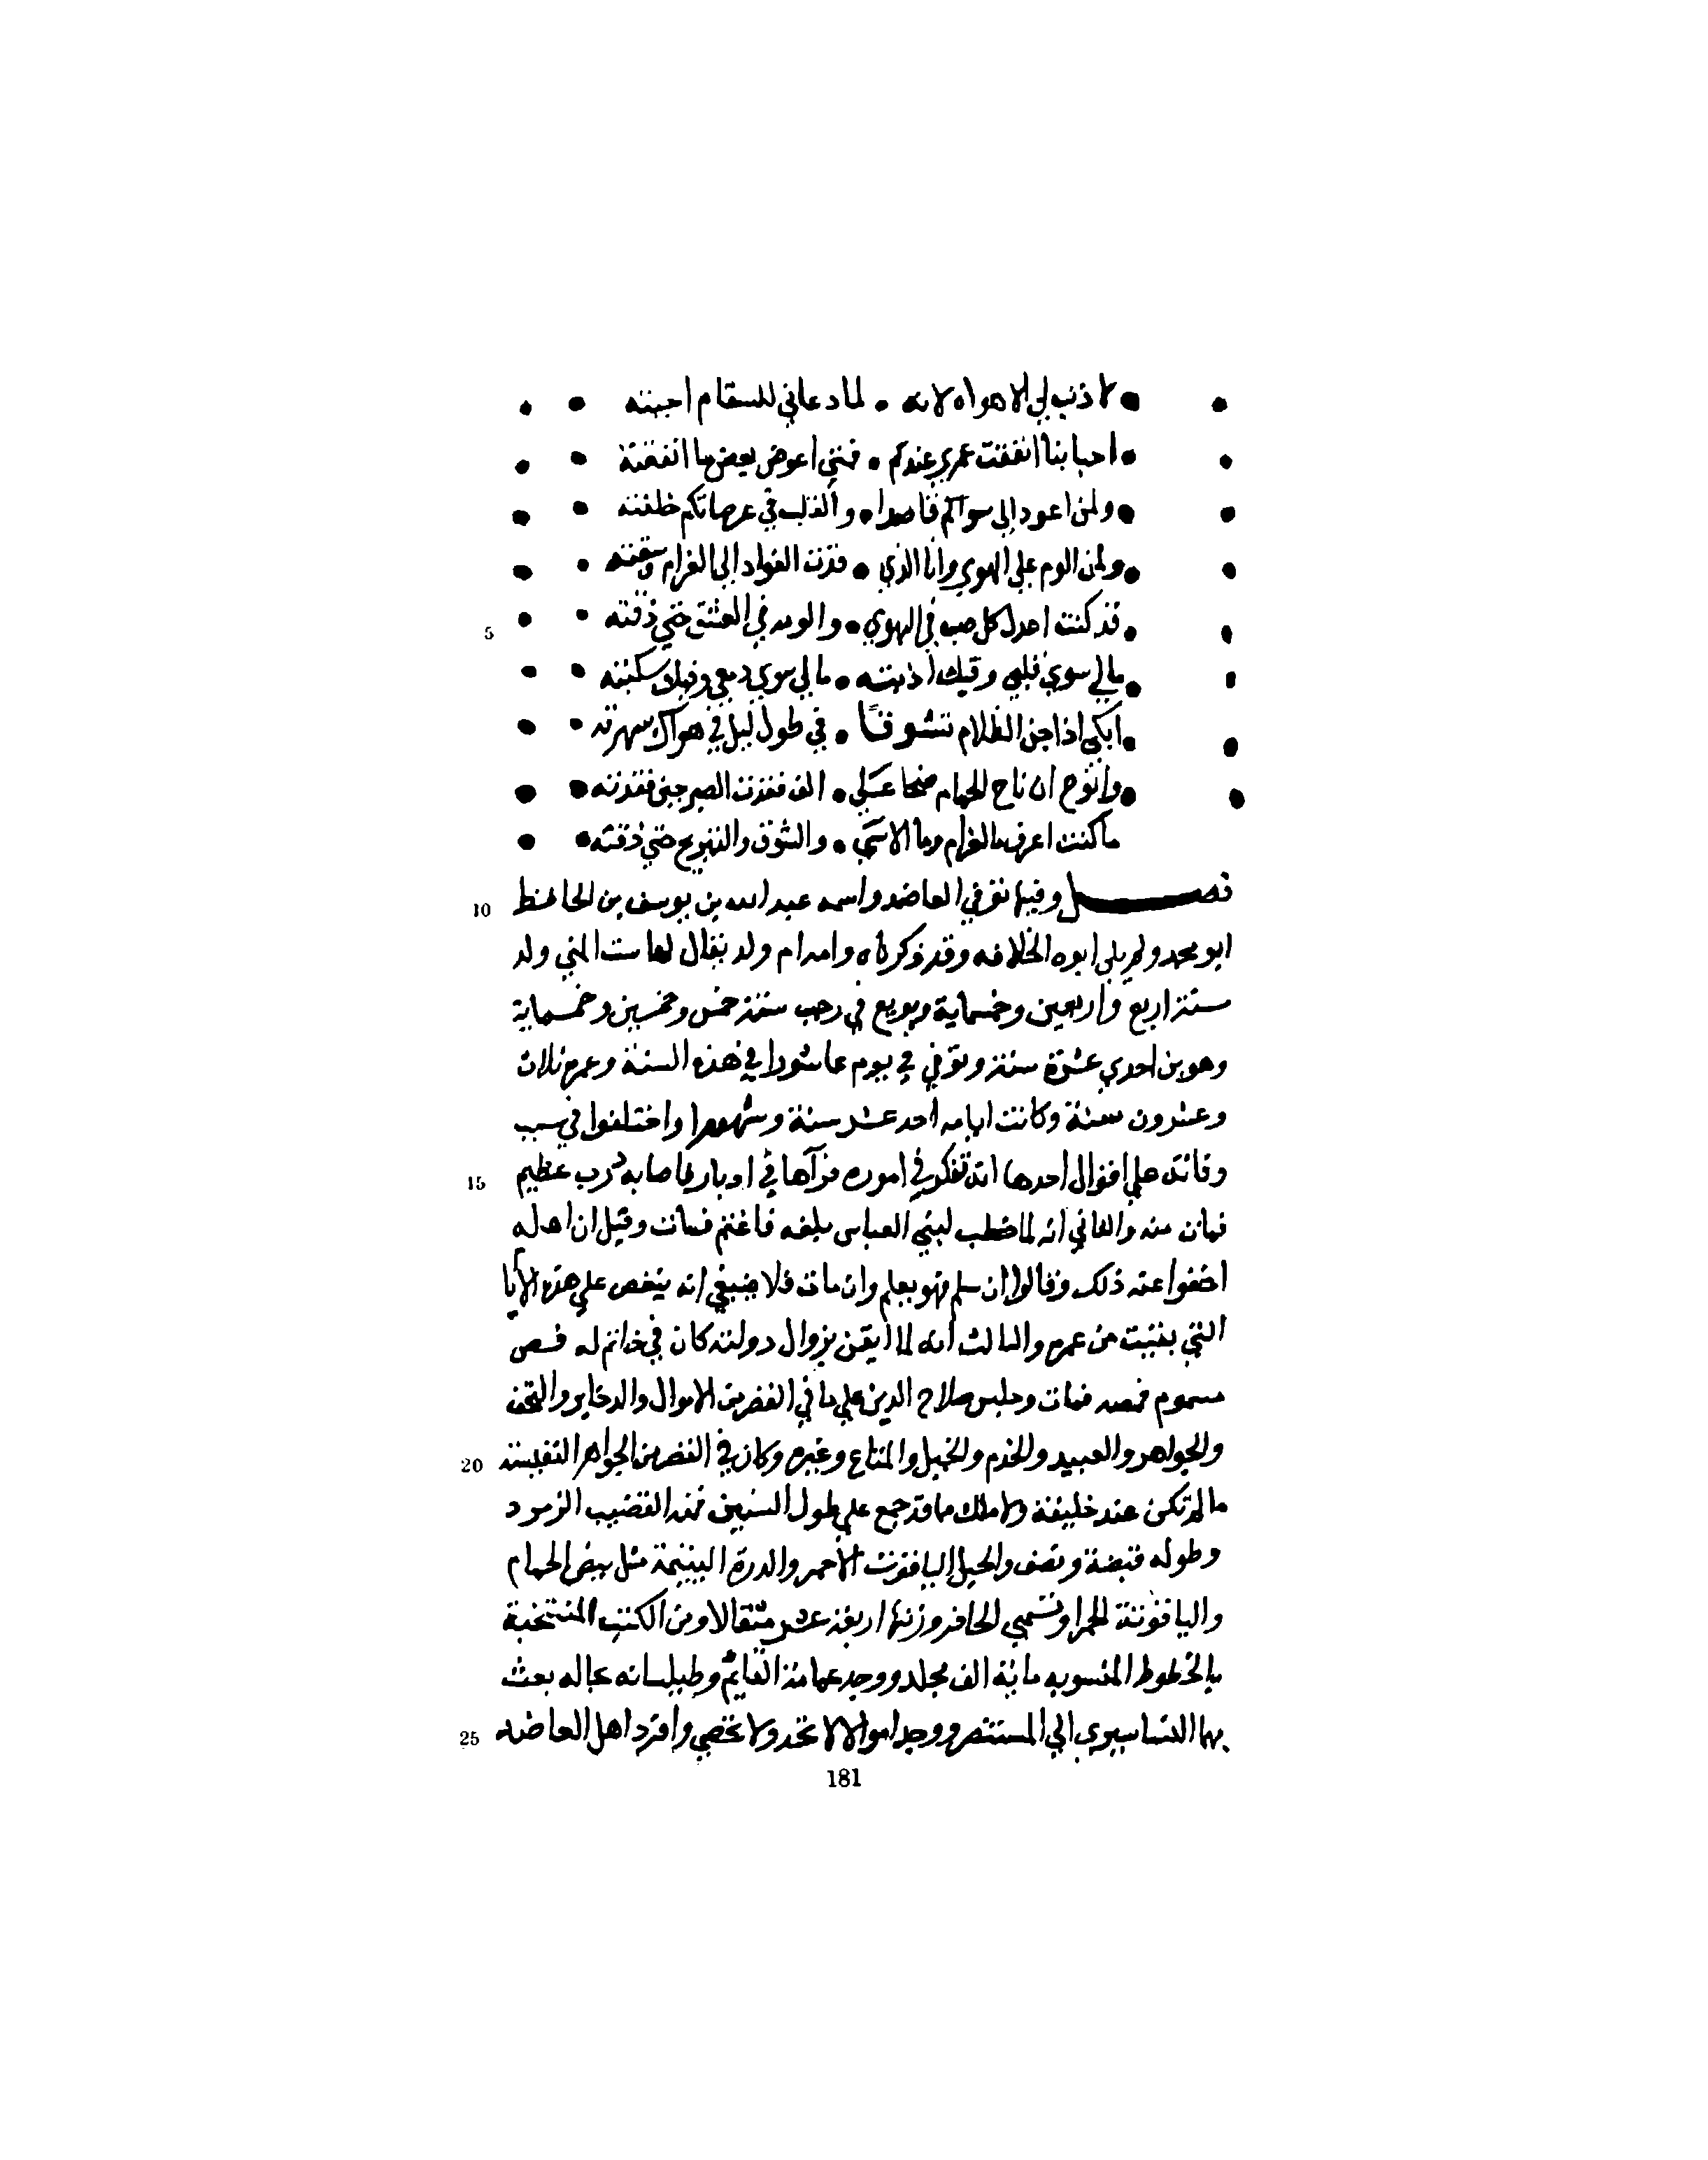 لا ذنب لي الا هواه لانه • لما دعاني للسقام اجبته
احبابنا انفقت عمري عندكم • فمتي اعوض بعض ما انفقته
ولمن اعود الي سواكم قاصدا • والقلب في عرصاتكم خلفته
ولمن الوم علي الهوي وانا الذي • قدت الفواد الي الغرام وسقته
5 قد كنت اعدل كل صب في الهوي • والومه في العشق حتي ذقته
مالي سوي قلبي وفيك اذبته • مالي سوي دمعي وفيك سكبته
ابكي اذا جن الظلام تشوقًا • في طول ليل في هواك سهرته
وانوح ان ناح الحمام ضحا علي • الف فقدت الصبر حين فقدته
ما كنت اعرف ما الغرام وما الاسي • والشوق والتبريح حتي ذقته
10 فصل وفيها توفي العاضد واسمه عبد الله بن يوسف بن الحافظ
ابو محمد ولم يلي ابوه الخلافه وقد ذكرناه وامه ام ولد يقال لها ست المني ولد
سنة اربع واربعين وخمسماية وبويع في رجب سنة خمس وخمسين وخمسماية
وهو بن احدي عشرة سنة وتوفي في يوم عاشورا في هذه السنة وعمره ثلاث
وعشرون سنة وكانت ايامه احد عشر سنة وشهورا واختلفوا في سبب
15 وفاته علي اقوال احدها انه تفكر في اموره فرآها في ادبار فاصابه ذرب عظيم
فمات منه والثاني انه لما خطب لبني العباس بلغه فاغتم فمات وقيل ان اهله
اخفوا عنه ذلك وقالوا ان سلم فهو يعلم وان مات فلا ينبغي ان ينغص علي هذه الأيا
التي بقيت من عمره والثالث انه لما ايقن بزوال دولته كان في خاتم له فص
مسموم فمصه فمات وجلس صلاح الدين علي ما في القصر من الاموال والدخاير والتحف
20 والجواهر والعبيد والخدم والخيل والمتاع وغيره وكان في القصر من الجواهر النفيسة
ما لم تكن عند خليفة ولا ملك مما قد جمع علي طول السنين فمنه القضيب الزمرد
وطوله قبضة ونصف والحبل الياقوت الاحمر والدرة اليتيمة مثل بيض الحمام
والياقوتة الحمرا وتسمي الحافر وزنها اربعة عشر مثقالا ومن الكتب المنتخبة
بالخطوط المنسوبه ماية الف مجلد ووجد عمامة القايم وطيلسانه بحاله بعث
25 بها البساسيري الي المستنصر ووجد اموالا لا تحد ولا تحصي وافرد اهل العاضد
181